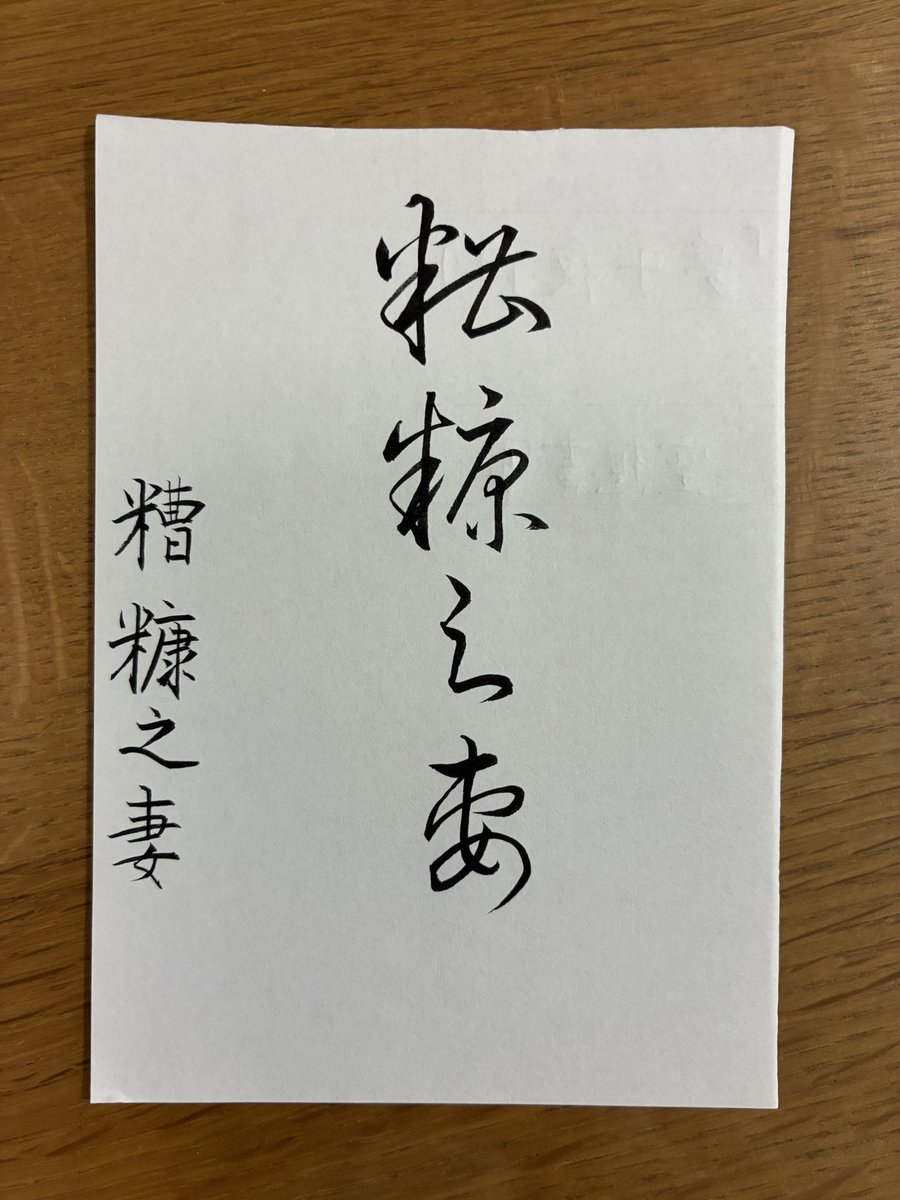 糟糠之妻
糟糠之妻